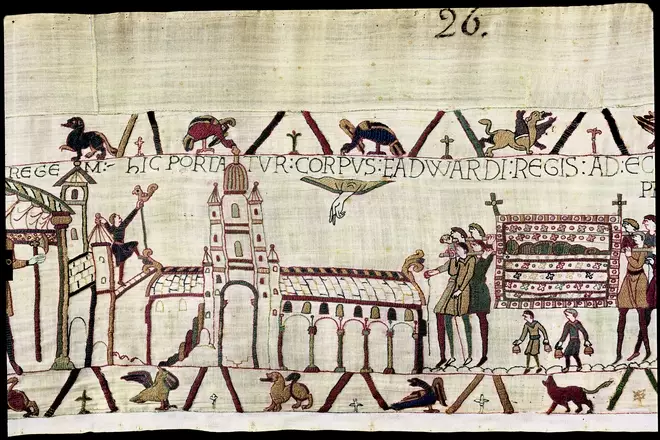 26.
REGE M: HIC PORTATUR: CORPUS: EADWARDI: REGIS: AD: EC